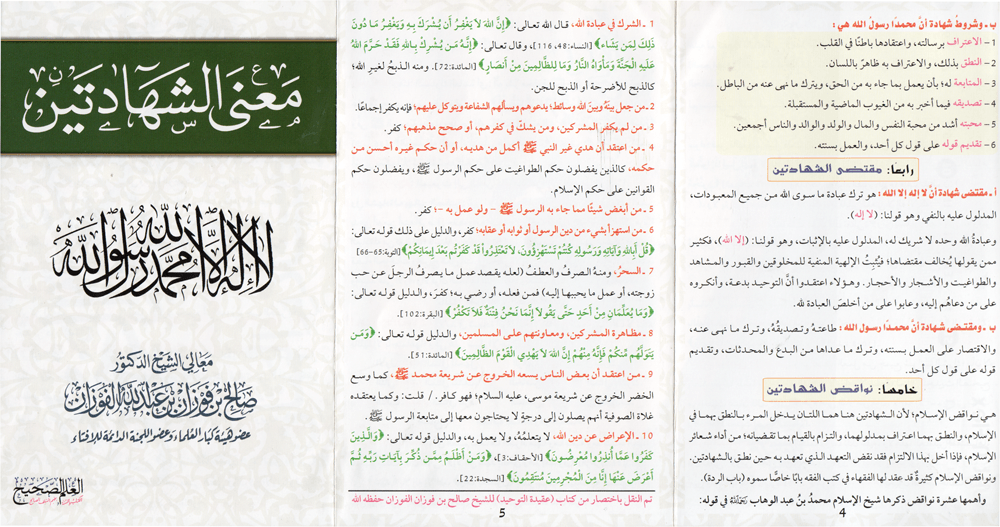 ب ـ وشروطُ شهادة أنَّ محمدًا رسولُ الله هي:
1- الاعتراف برسالته، واعتقادها باطنًا في القلب.
2- النطق بذلك، والاعتراف به ظاهرً باللسان.
3- المتابعة له؛ بأن يعمل بما جاء به من الحق، ويترك ما نهى عنه من الباطل.
4- تصديقه فيما أخبر به من الغيوب الماضية والمستقبلة.
5- محبته أشد من محبة النفس والمال والولد والوالد والناس أجمعين.
6- تقديم قوله على قول كل أحد، والعمل بسنته.
رابعًا: مقتضى الشهادتين
أ ـ مقتضى شهادة أنَّ لا إله إلا الله : هو ترك عبادة ما سوى الله من جميع المعبودات،
المدلول عليه بالنفي وهو قولنا: (لا إله).
وعبادةُ الله وحده لا شريك له، المدلول عليه بالإثبات، وهو قولنا: (إلا الله)، فكثير
ممن يقولها يُخالف مقتضاها؛ فيُثبِتُ الإلهية المنفية للمخلوقين والقبور والمشاهد
والطواغيت والأشجار والأحجار. وهؤلاء اعتقدوا أنَّ التوحيد بدعة، وأنكروه
على من دعاهم إليه، وعابوا على من أخلصَ العبادة لله.
ب ـ ومقتضى شهادة أنَّ محمدًا رسول الله : طاعتهُ وتصديقُهُ، وترك ما نهى عنه،
والاقتصار على العمل بسنته، وترك ما عداها من البدع والمحدثات، وتقديم
قوله على قول كل أحد.
خامسًا: نواقض الشهادتين
هي نواقض الإسلام؛ لأن الشهادتين هنا هما اللتان يدخل المرء بالنطق بهما في
الإسلام، والنطق بهما اعتراف بمدلولهما، والتزام بالقيام بما تقتضيانه؛ من أداء شعائر
الإسلام، فإذا أخل بهذا الالتزام فقد نقض التعهد الذي تعهد به حين نطق بالشهادتين.
ونواقض الإسلام كثيرةٌ قد عقد لها الفقهاء في كتب الفقه بابًا خاصًّا سموه (باب الردة).
وأهمها عشرة نواقض ذكرها شيخ الإسلام محمدُ بنُ عبد الوهاب رحمه الله في قوله:
4
1 ـ الشرك في عبادة الله، قال الله تعالى: ﴿إِنَّ اللهَ لَا يَغْفِرُ أَن يُشْرَكَ بِهِ وَيَغْفِرُ مَا دُونَ
ذَلِكَ لِمَن يَشَاء﴾ [النساء: 48، 116]، وقال تعالى: ﴿إِنَّهُ مَن يُشْرِكْ بِاللهِ فَقَدْ حَرَّمَ اللهُ
عَلَيهِ الْجَنَّةَ وَمَأْوَاهُ النَّارُ وَمَا لِلظَّالِمِينَ مِنْ أَنصَارٍ﴾ [المائدة: 72]. ومنه الذبحُ لغيرِ الله؛
كالذبحِ للأضرحةِ أو الذبحِ للجن.
2 ـ من جعل بينهُ وبينَ الله وسائطَ؛ يدعوهم ويسألهم الشفاعة ويتوكل عليهم؛ فإنه يكفر إجماعًا.
3 ـ من لم يكفر المشركين، ومن يشكُ في كفرهم، أو صحح مذهبهم؛ كفر.
4 ـ من اعتقد أن هدي غير النبي ﷺ أكمل من هديه، أو أن حكم غيره أحسن من
حكمه، كالذين يفضلون حكم الطواغيت على حكم الرسول ﷺ، ويفضلون حكم
القوانين على حكم الإسلام.
5 ـ من أبغض شيئًا مما جاء به الرسول ﷺ – ولو عمل به –؛ كفر.
6 ـ من استهزأ بشيء من دين الرسول أو ثوابه أو عقابه؛ كفر، والدليل على ذلك قوله تعالى:
﴿قُلْ أَبِاللهِ وَآيَاتِهِ وَرَسُولِهِ كُنتُمْ تَسْتَهْزِؤُونَ، لَا تَعْتَذِرُوا قَدْ كَفَرْتُم بَعْدَ إِيمَانِكُمْ﴾ [التوبة: 65–66]
7 ـ السحرُ، ومنهُ الصرفُ والعطفُ (لعله يقصد عمل ما يصرفُ الرجل عن حب
زوجته، أو عمل ما يحببها إليه) فمن فعله، أو رضي به؛ كفرَ، والدليل قوله تعالى:
﴿وَمَا يُعَلِّمَانِ مِنْ أَحَدٍ حَتَّى يَقُولَا إِنَّمَا نَحْنُ فِتْنَةٌ فَلَا تَكْفُرْ﴾ [البقرة: 102].
8 ـ مظاهرة المشركين، ومعاونتهم على المسلمين، والدليل قوله تعالى: ﴿وَمَن
يَتَوَلَّهُم مِّنكُمْ فَإِنَّهُ مِنْهُمْ إِنَّ اللهَ لَا يَهْدِي الْقَوْمَ الظَّالِمِينَ﴾ [المائدة: 51].
9 ـ من اعتقد أن بعض الناس يسعه الخروج عن شريعة محمد ﷺ، كما وسع
الخضر الخروج عن شريعة موسى، عليه السلام؛ فهو كافر. / قلت: وكما يعتقده
غلاة الصوفية أنهم يصلون إلى درجةٍ لا يحتاجون معها إلى متابعة الرسول ﷺ.
10 ـ الإعراض عن دين الله، لا يتعلمُهُ، ولا يعمل به، والدليل قوله تعالى: ﴿وَالَّذِينَ
كَفَرُوا عَمَّا أُنذِرُوا مُعْرِضُونَ﴾ [الأحقاف: 3]، ﴿وَمَنْ أَظْلَمُ مِمَّن ذُكِّرَ بِآيَاتِ رَبِّهِ ثُمَّ
أَعْرَضَ عَنْهَا إِنَّا مِنَ الْمُجْرِمِينَ مُنتَقِمُونَ﴾ [السجدة: 22].
تم النقل باختصار من كتاب (عقيدة التوحيد) للشيخ صالح بن فوزان الفوزان حفظه الله
5
معنى الشهادتين
لا إله إلا الله محمد رسول الله
معالي الشيخ الدكتور
صالح بن فوزان بن عبد الله الفوزان
عضو هيئة كبار العلماء وعضو اللجنة الدائمة للإفتاء
العلم الصحيح